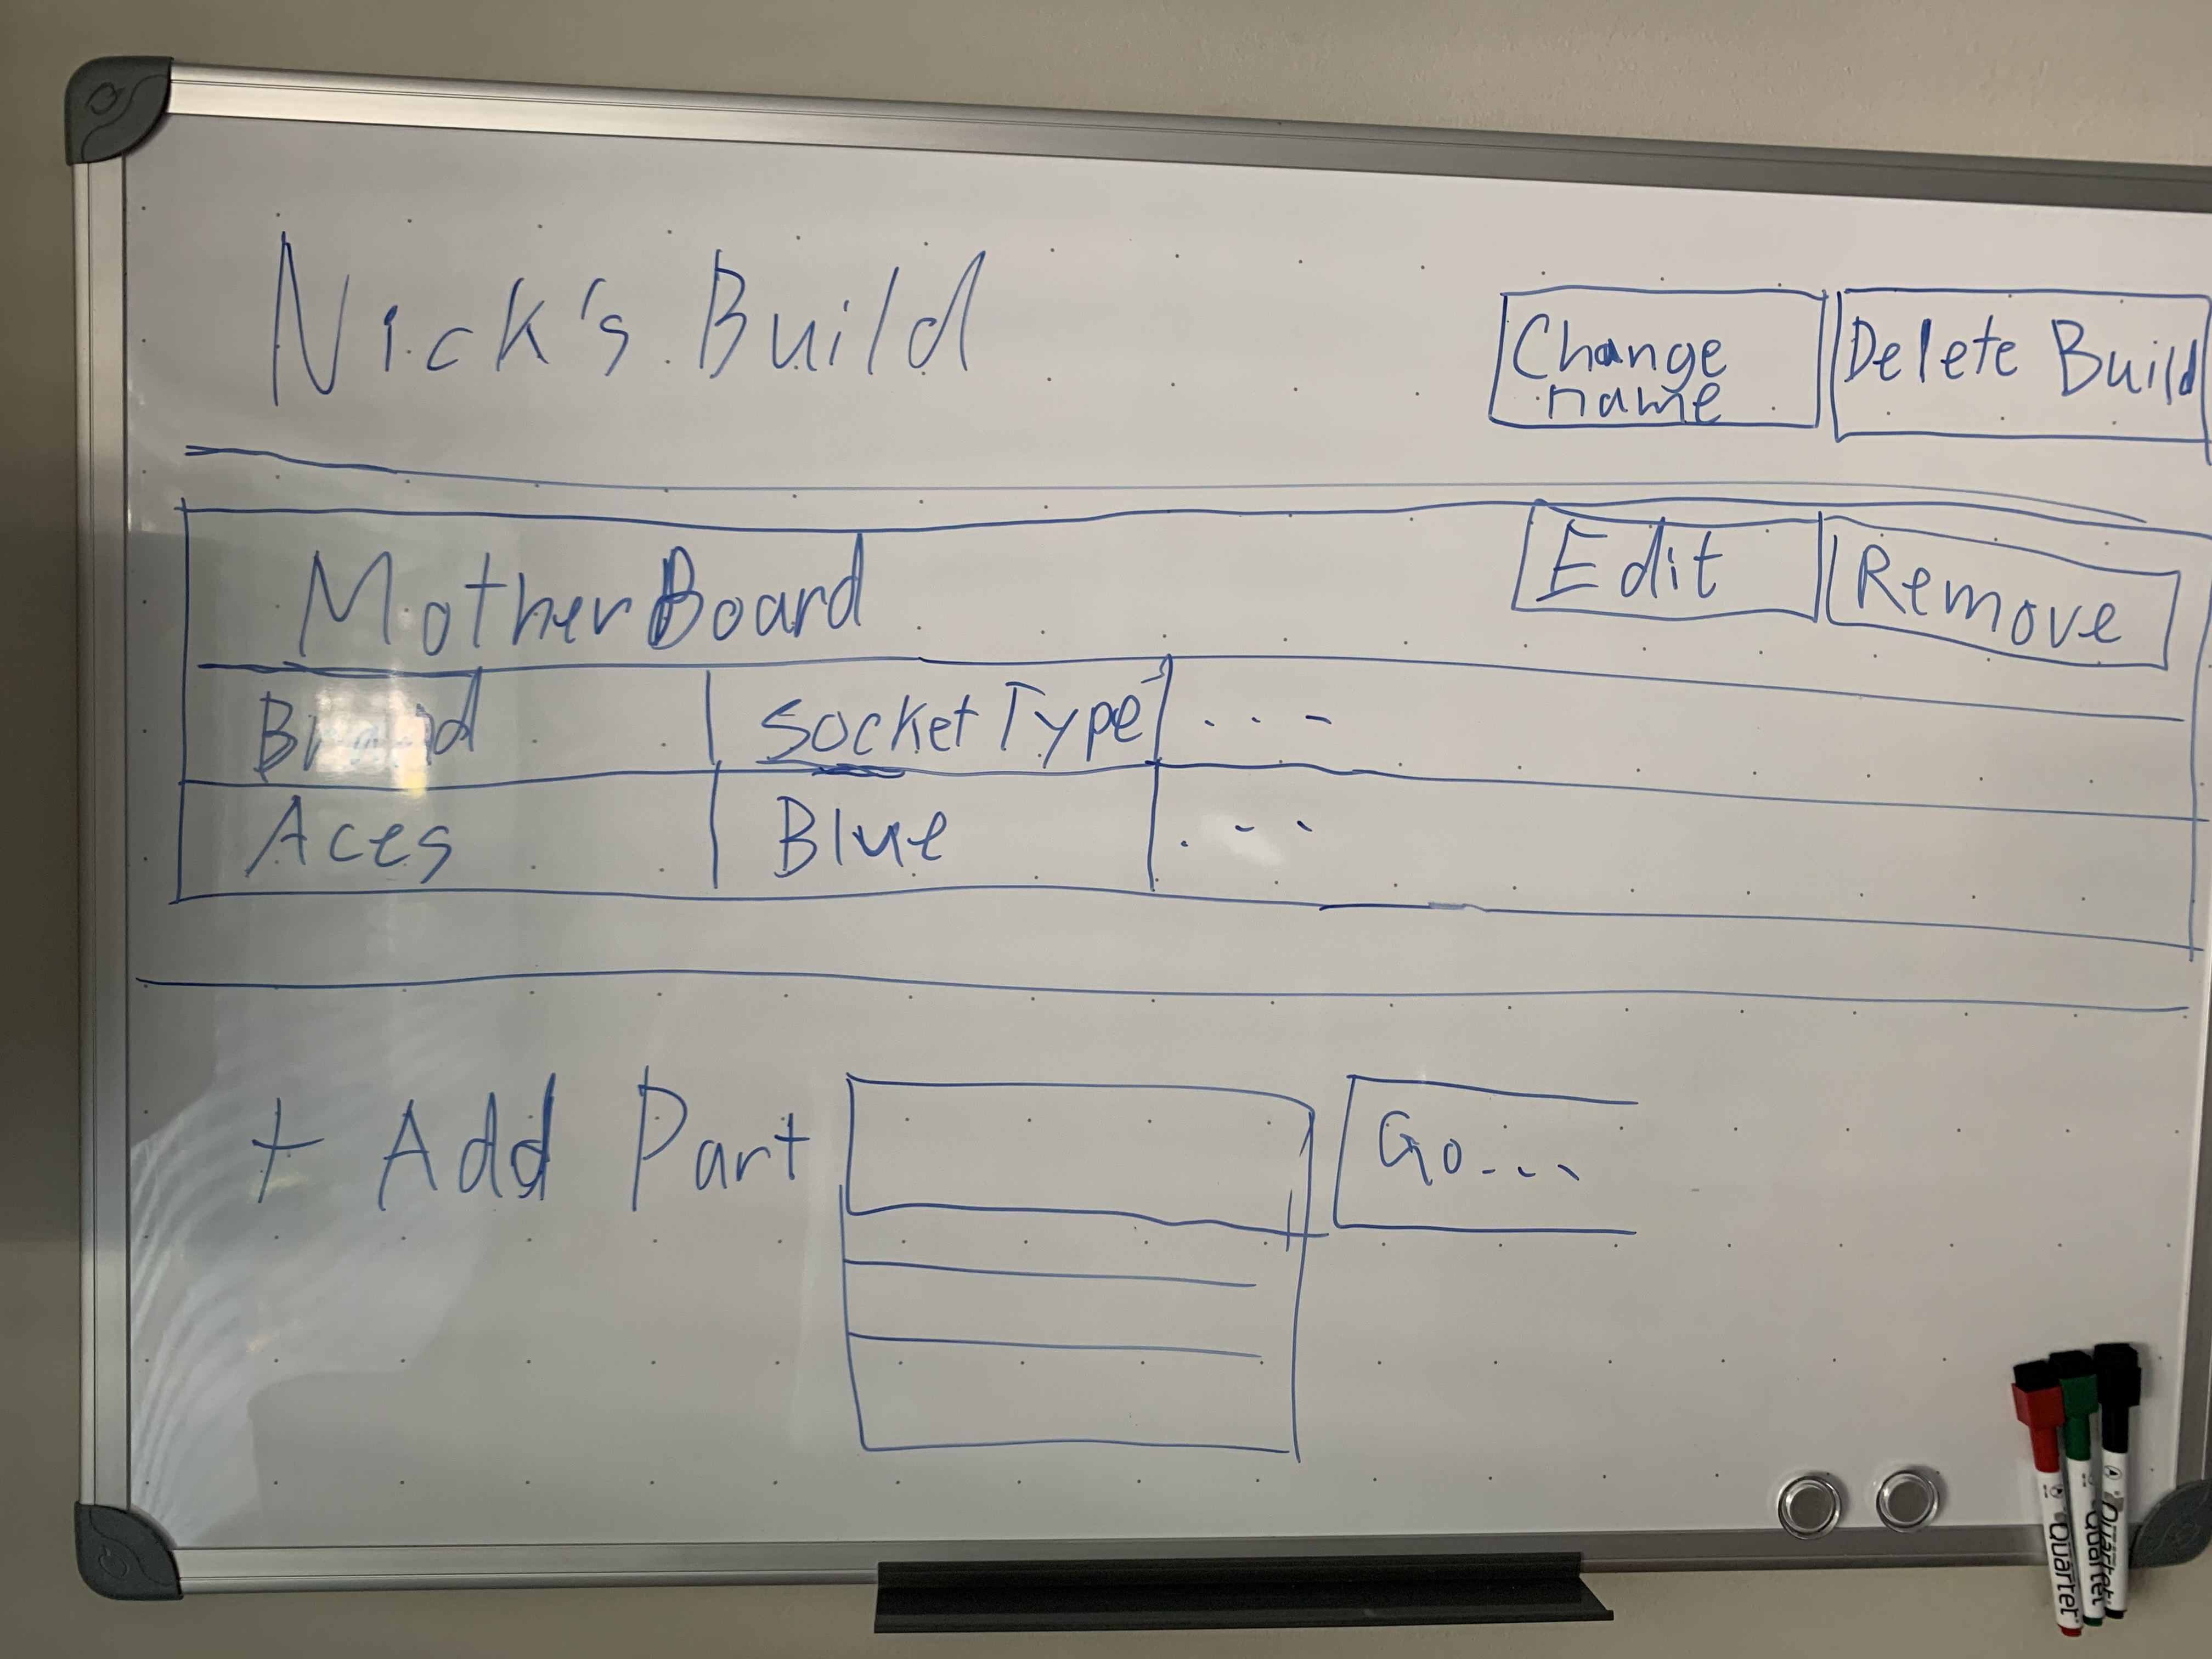 Nick's Build
Change
name
Delete Build
MotherBoard
Edit
Remove
Brand
Socket Type
...
Aces
Blue
...
+ Add Part
Go...
Quartet
Quartet
Quartet